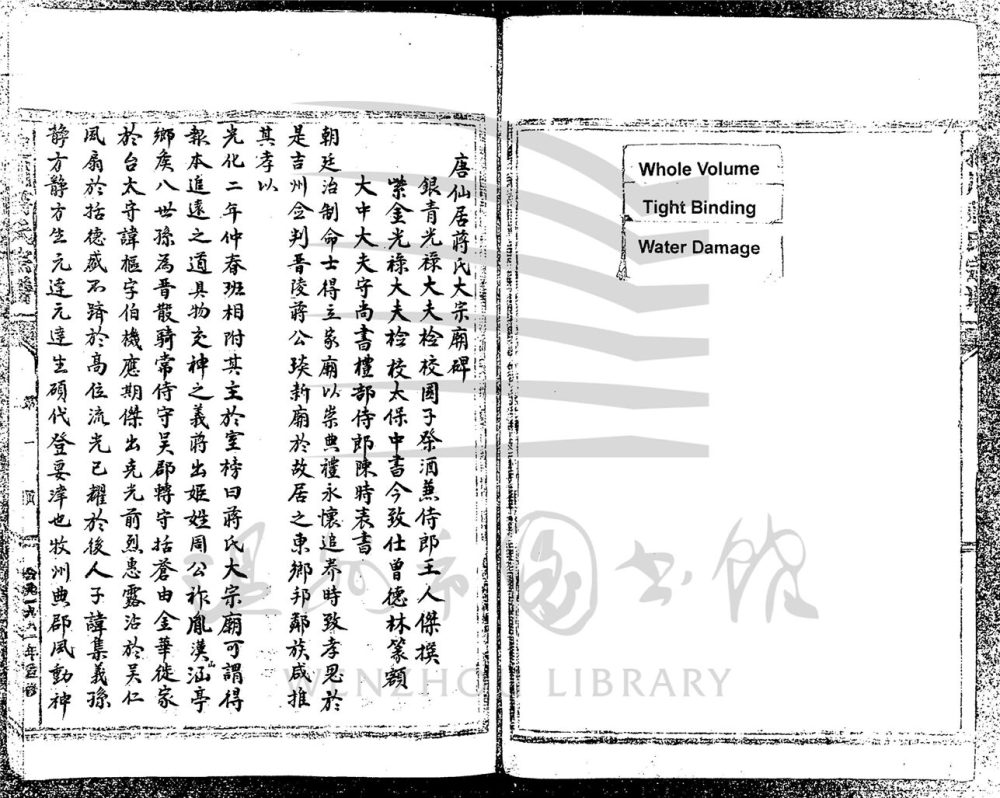 唐仙居蔣氏大宗廟碑
銀青光祿大夫检校國子祭酒兼侍郎王人傑撰
紫金光祿大夫检校太保中書令致仕曾德林篆額
大中大夫守尚書禮部侍郎陳時表書
朝廷治制命士得立家廟以崇典禮永懷追养時致孝思於
是吉州佥判晋陵蔣公琰新廟於故居之東鄉邦鄰族咸推
其孝以
光化二年仲春班相附其主於室榜曰蔣氏大宗廟可謂得
報本追遠之道具物交神之義蔣出姬姓周公祚胤漢㴠亭山
鄉侯八世孫為晋散騎常侍守吴郡轉守括蒼由金華徙家
於台太守諱樞字伯機應期傑出克光前烈惠露治於吴仁
風扇於括德盛不躋於高位流光已耀於後人子諱集義孫
靜方靜方生元逹元逹生碩代登要津也牧州典郡風動神
第一頁
公元一九九一年重修
Whole Volume
Tight Binding
Water Damage
温州市图书馆
WENZHOU LIBRARY